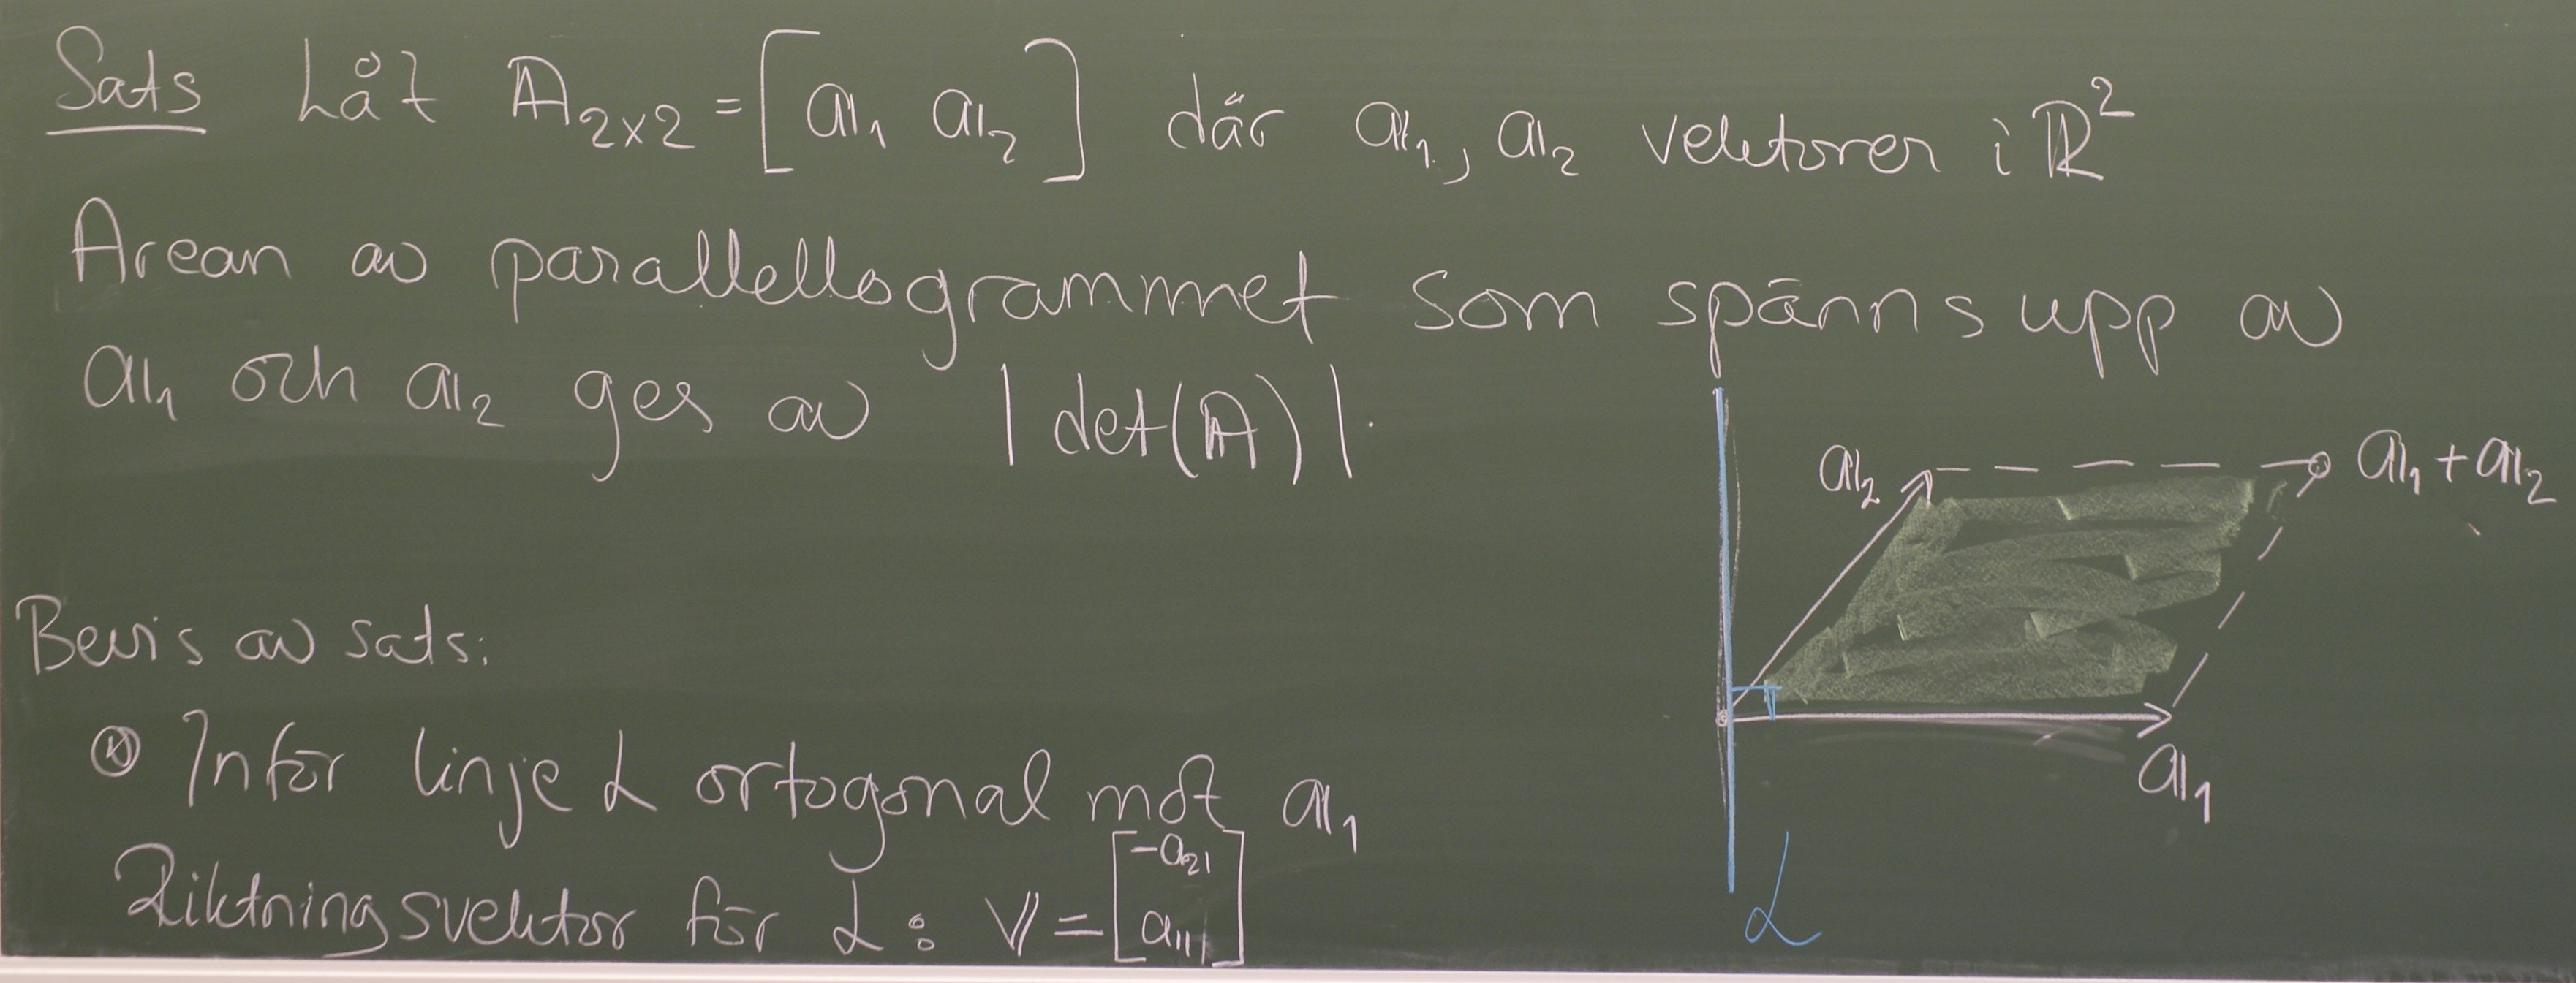 Sats Låt A₂ₓ₂ = [ a₁ a₂ ] där a₁, a₂ vektorer i ℝ²
Arean av parallellogrammet som spänns upp av
a₁ och a₂ ges av |det(A)|.
a₂
a₁ + a₂
a₁
L
Bevis av sats:
① Inför linje L ortogonal mot a₁
Riktningsvektor för L : v = [ -a₂₁
a₁₁ ]